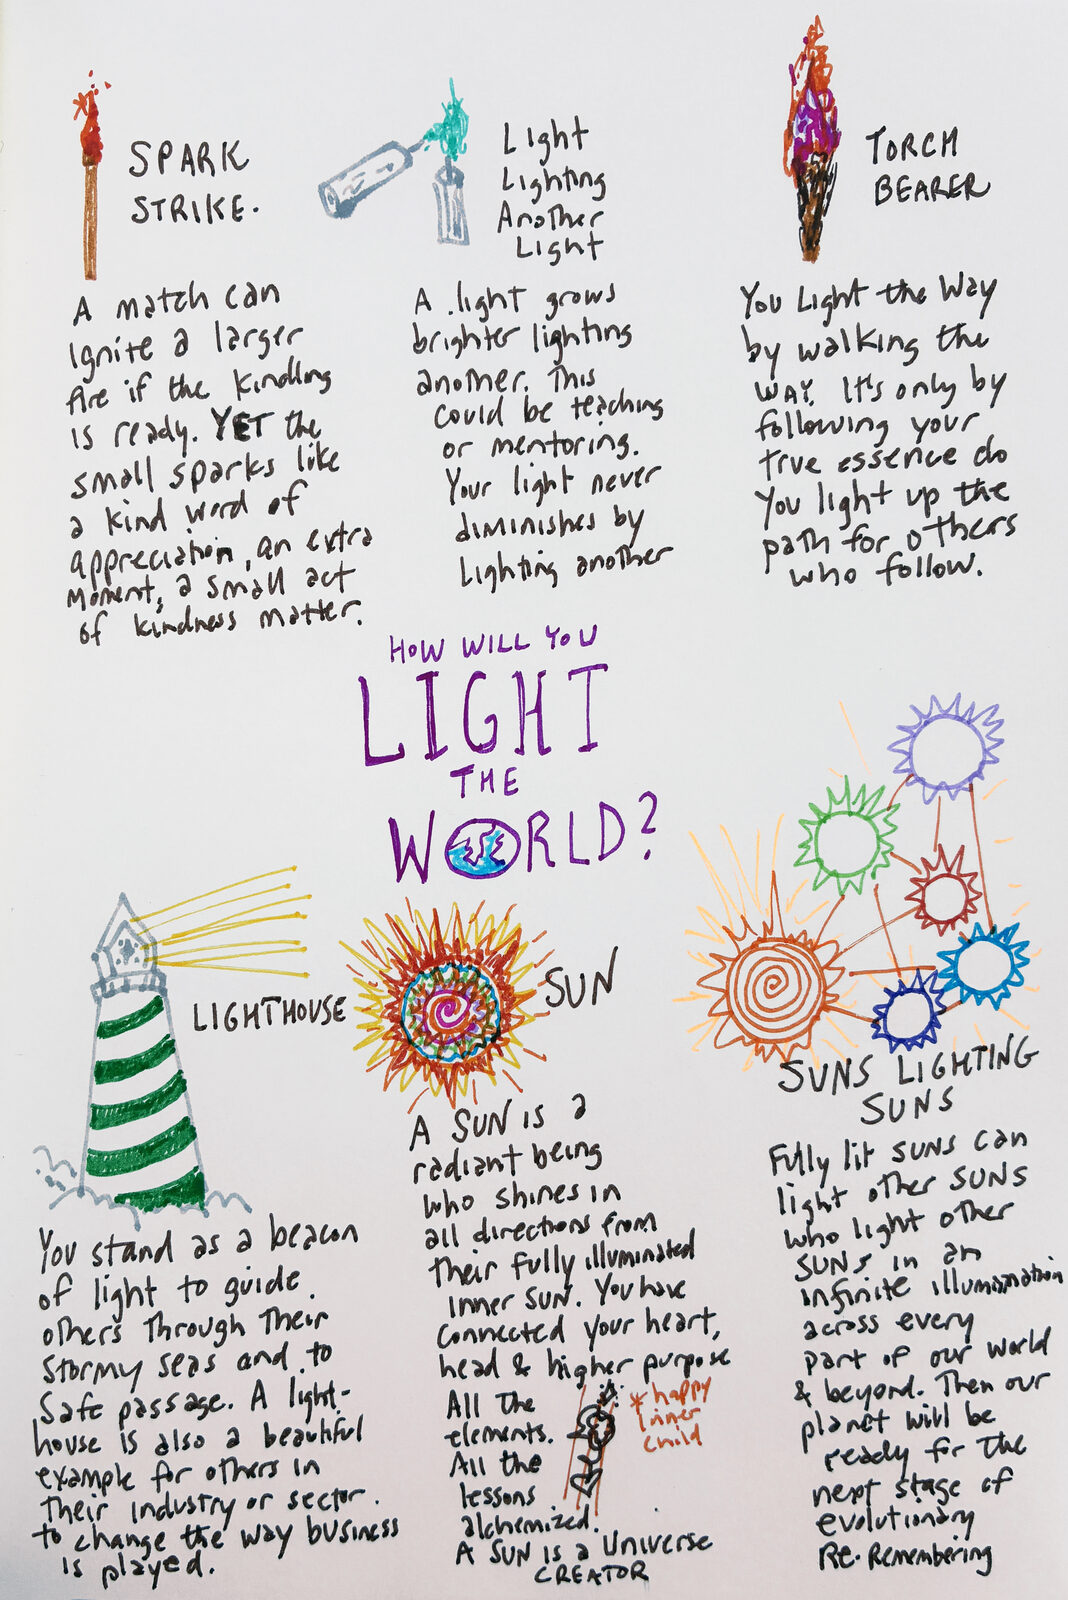 SPARK
STRIKE.
A match can
ignite a larger
fire if the kindling
is ready. YET the
small sparks like
a kind word of
appreciation, an extra
moment, a small act
of kindness matter.
Light
Lighting
Another
Light
A light grows
brighter lighting
another. This
could be teaching
or mentoring.
Your light never
diminishes by
Lighting another
TORCH
BEARER
You Light the Way
by walking the
WAY. It's only by
following your
true essence do
you light up the
path for others
who follow.
HOW WILL YOU
LIGHT
THE
WORLD?
LIGHTHOUSE
You stand as a beacon
of light to guide
others through their
stormy seas and to
safe passage. A light-
house is also a beautiful
example for others in
their industry or sector.
to change the way business
is played.
SUN
A SUN is a
radiant being
who shines in
all directions from
their fully illuminated
inner SUN. You have
connected your heart,
head & higher purpose
All the
elements.
All the
lessons
alchemized.
A SUN is a Universe
CREATOR
* happy
inner
child
SUNS LIGHTING
SUNS
Fully lit SUNS can
light other SUNS
who light other
SUNS in an
infinite illumination
across every
part of our world
& beyond. Then our
planet will be
ready for the
next stage of
evolutionary
Re-Remembering